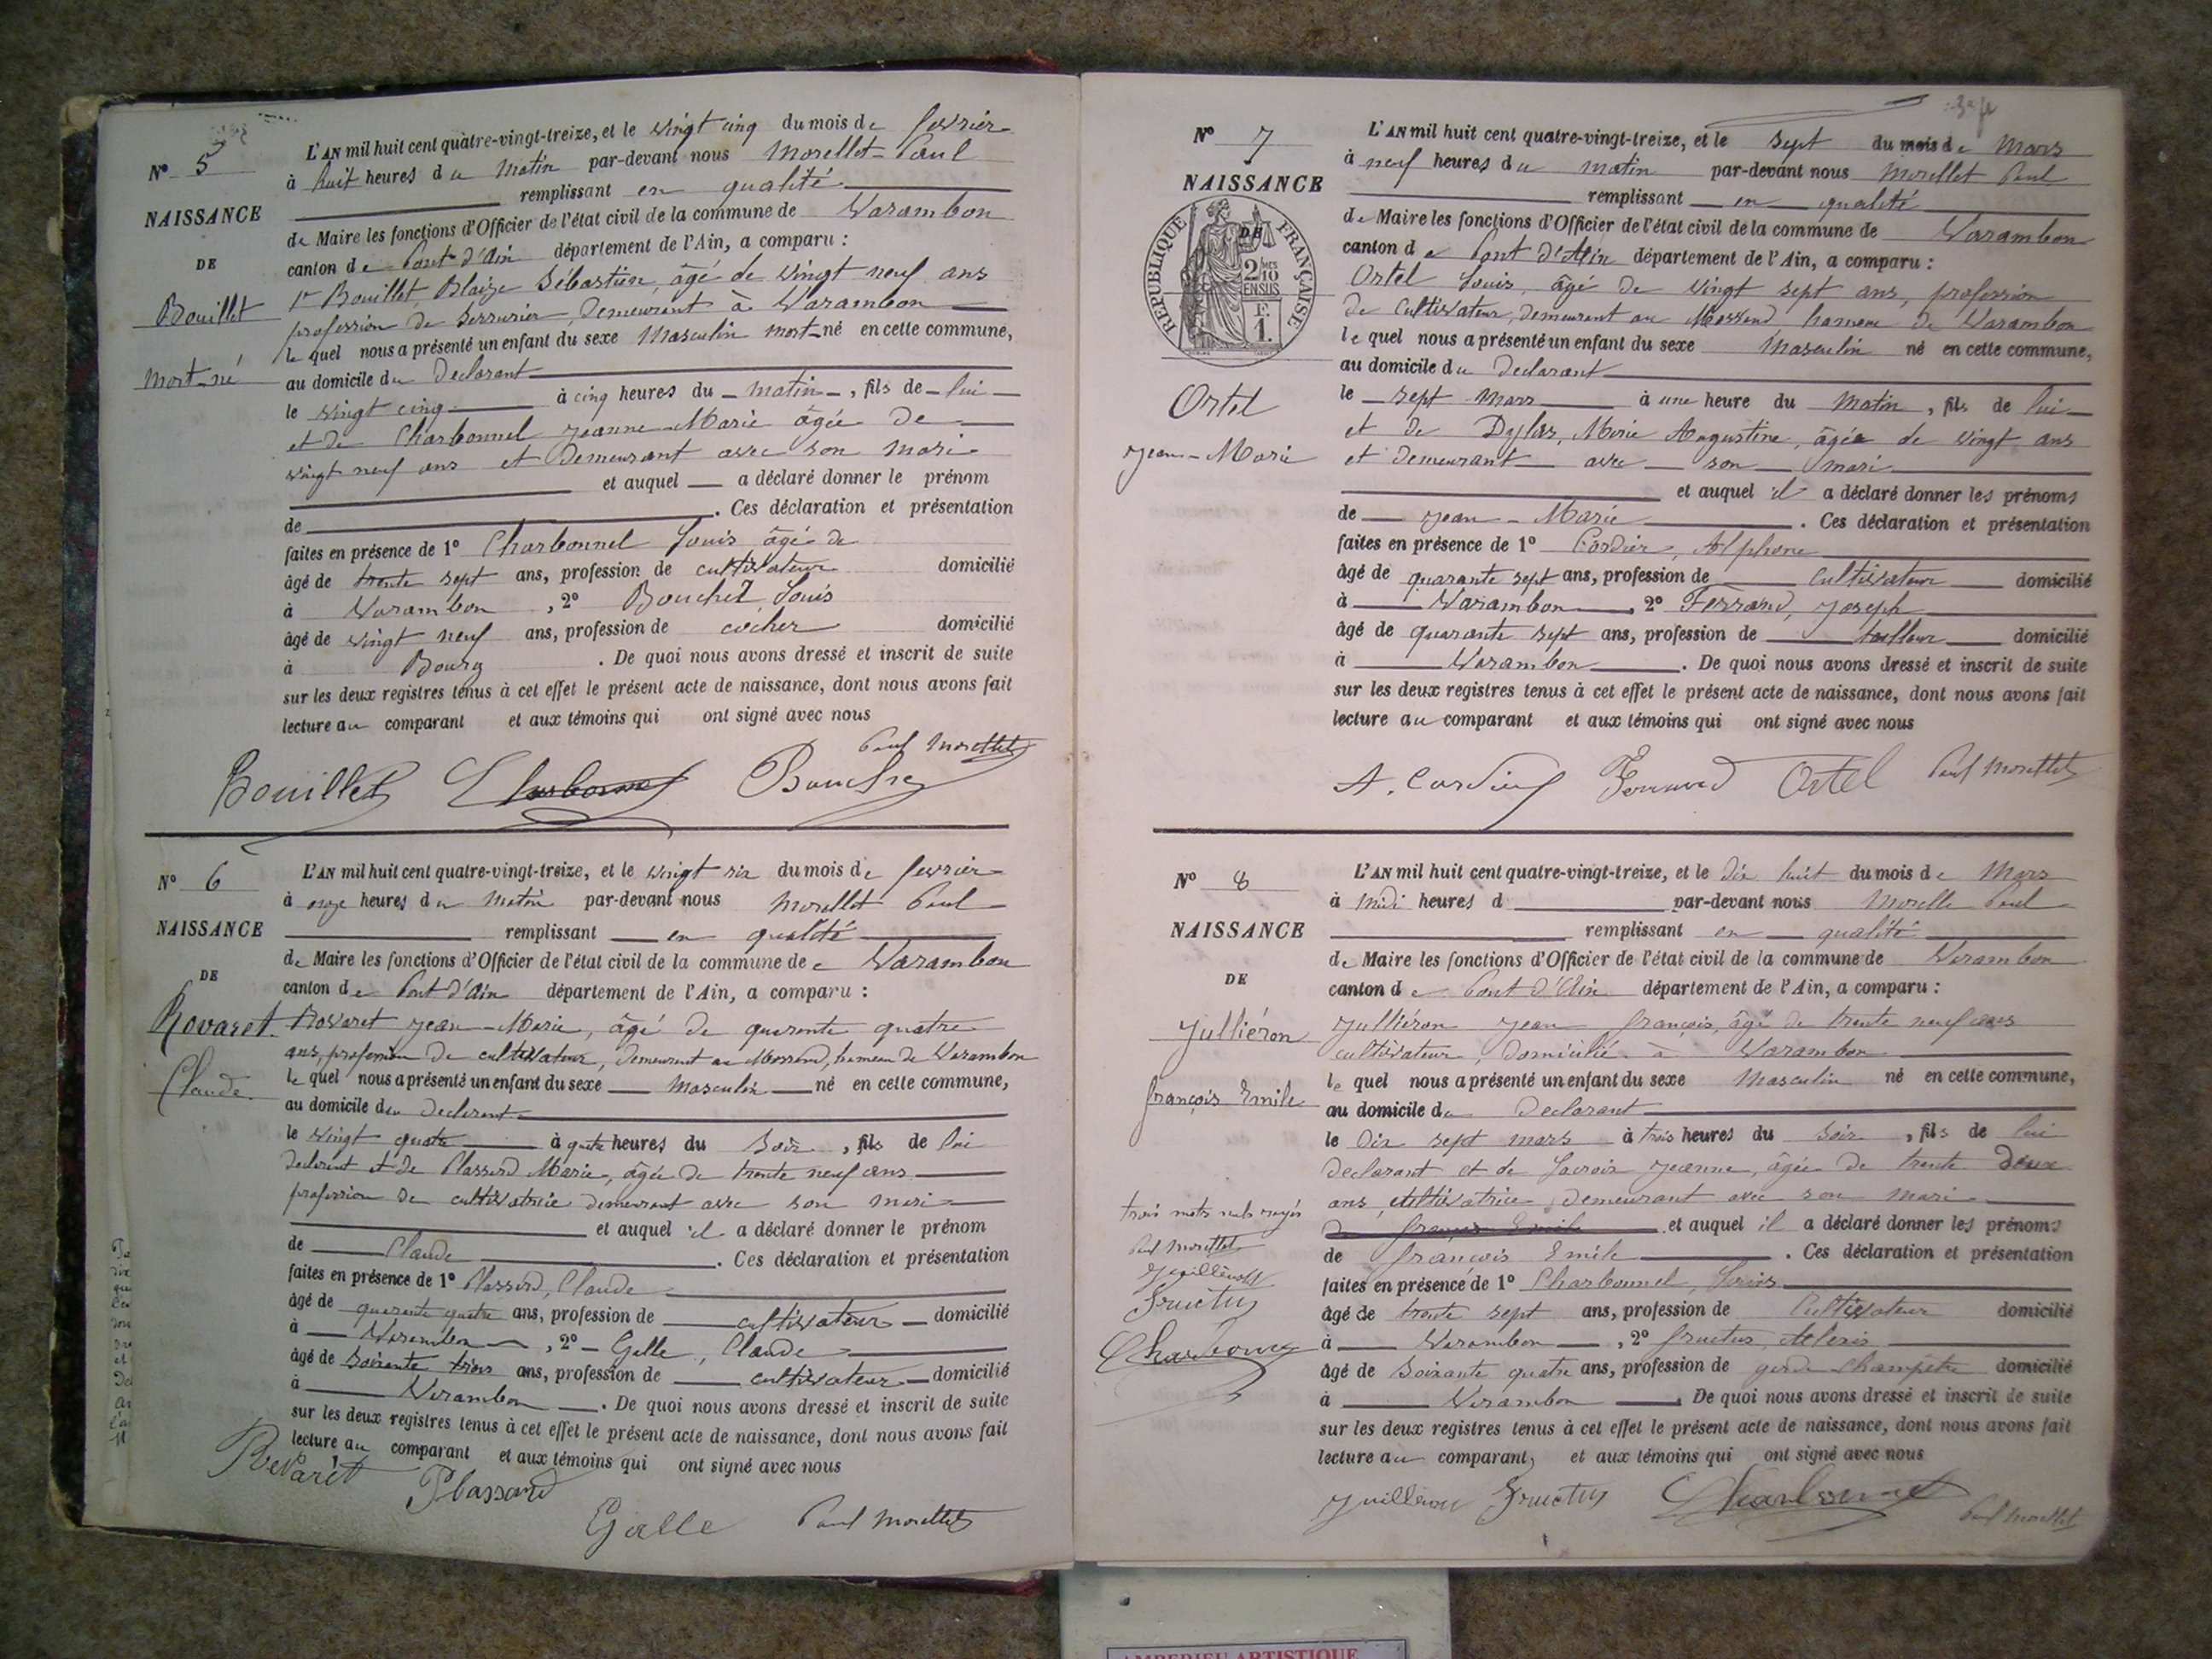 N° 5
NAISSANCE
DE
Bouillet
mort-né
L'AN mil huit cent quatre-vingt-treize, et le vingt cinq du mois de février
à huit heures du matin par-devant nous Morellet Paul
remplissant en qualité
de Maire les fonctions d'Officier de l'état civil de la commune de Varambon
canton de Pont d'Ain département de l'Ain, a comparu :
1er Bouillet, Blaize Sébastien, âgé de vingt neuf ans
profession de serrurier, demeurant à Varambon
le quel nous a présenté un enfant du sexe Masculin mort-né en cette commune,
au domicile du Déclarant
le vingt cinq à cinq heures du matin, fils de lui
et de Charbonnel Jeanne-Marie âgée de
vingt neuf ans et demeurant avec son mari
et auquel a déclaré donner le prénom
de . Ces déclaration et présentation
faites en présence de 1° Charbonnel Louis âgé de
âgé de trente sept ans, profession de cultivateur domicilié
à Varambon, 2° Bouchet, Louis
âgé de vingt neuf ans, profession de cocher domicilié
à Bourg. De quoi nous avons dressé et inscrit de suite
sur les deux registres tenus à cet effet le présent acte de naissance, dont nous avons fait
lecture au comparant et aux témoins qui ont signé avec nous
Paul Morellet
Bouillet Charbonnel Bouchet
N° 6
NAISSANCE
DE
Rovaret
Claude
L'AN mil huit cent quatre-vingt-treize, et le vingt six du mois de février
à onze heures du matin par-devant nous Morellet Paul
remplissant en qualité
de Maire les fonctions d'Officier de l'état civil de la commune de Varambon
canton de Pont d'Ain département de l'Ain, a comparu :
Rovaret Jean-Marie, âgé de quarante quatre
ans, profession de cultivateur, demeurant au hameau de Varambon
le quel nous a présenté un enfant du sexe Masculin né en cette commune,
au domicile du déclarant
le vingt quatre à quatre heures du soir, fils de lui
déclarant et de Plassard Marie, âgée de trente neuf ans
profession de cultivatrice demeurant avec son mari
et auquel il a déclaré donner le prénom
de Claude. Ces déclaration et présentation
faites en présence de 1° Plassard, Claude
âgé de quarante quatre ans, profession de cultivateur domicilié
à Varambon, 2° Galle, Claude
âgé de soixante trois ans, profession de cultivateur domicilié
à Varambon. De quoi nous avons dressé et inscrit de suite
sur les deux registres tenus à cet effet le présent acte de naissance, dont nous avons fait
lecture au comparant et aux témoins qui ont signé avec nous
Revaret Plassard
Galle Paul Morellet
N° 7
NAISSANCE
DE
RÉPUBLIQUE FRANÇAISE
2/10 MES
EN SUS
1 F.
Ortel
Jean-Marie
L'AN mil huit cent quatre-vingt-treize, et le sept du mois de Mars
à neuf heures du matin par-devant nous Morellet Paul
remplissant en qualité
de Maire les fonctions d'Officier de l'état civil de la commune de Varambon
canton de Pont d'Ain département de l'Ain, a comparu :
Ortel Louis, âgé de vingt sept ans, profession
de cultivateur, demeurant au hameau de Varambon
le quel nous a présenté un enfant du sexe Masculin né en cette commune,
au domicile du Déclarant
le sept mars à une heure du matin, fils de lui
et de Marie Augustine, âgée de vingt ans
et demeurant avec son mari
et auquel il a déclaré donner les prénoms
de Jean-Marie. Ces déclaration et présentation
faites en présence de 1° Cordier, Alphonse
âgé de quarante sept ans, profession de cultivateur domicilié
à Varambon, 2° Ferrand, Joseph
âgé de quarante sept ans, profession de tailleur domicilié
à Varambon. De quoi nous avons dressé et inscrit de suite
sur les deux registres tenus à cet effet le présent acte de naissance, dont nous avons fait
lecture au comparant et aux témoins qui ont signé avec nous
A. Cordier Ferrand Ortel Paul Morellet
N° 8
NAISSANCE
DE
Julliéron
françois Emile
trois mots nuls rayés
Paul Morellet
Juilliéron
Fructus
Charbonnel
L'AN mil huit cent quatre-vingt-treize, et le dix huit du mois de Mars
à midi heures d par-devant nous Morelle Paul
remplissant en qualité
de Maire les fonctions d'Officier de l'état civil de la commune de Varambon
canton de Pont d'Ain département de l'Ain, a comparu :
Julliéron Jean françois, âgé de trente neuf ans
cultivateur, domicilié à Varambon
le quel nous a présenté un enfant du sexe Masculin né en cette commune,
au domicile du Déclarant
le dix sept mars à trois heures du soir, fils de lui
déclarant et de Lacroix Jeanne, âgée de trente deux
ans, cultivatrice, demeurant avec son mari
de françois Emile et auquel il a déclaré donner les prénoms
de françois Emile. Ces déclaration et présentation
faites en présence de 1° Charbonnel, Louis
âgé de trente sept ans, profession de cultivateur domicilié
à Varambon, 2° fructus, Alexis
âgé de soixante quatre ans, profession de garde champêtre domicilié
à Varambon. De quoi nous avons dressé et inscrit de suite
sur les deux registres tenus à cet effet le présent acte de naissance, dont nous avons fait
lecture au comparant, et aux témoins qui ont signé avec nous
Juilliéron Fructus Charbonnel Paul Morellet
AMBERIEU ARTISTIQUE